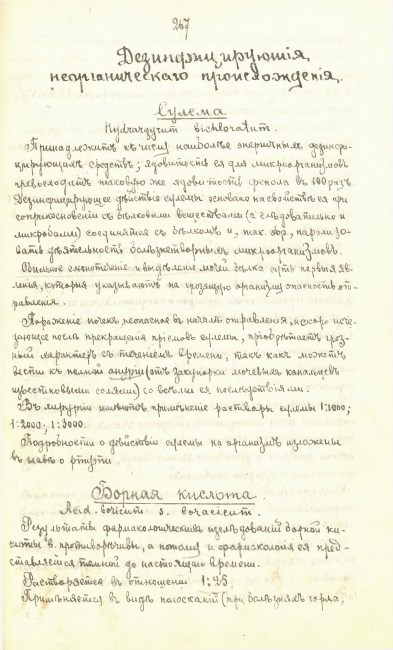 267
Дезинфицирующiя,
неорганическаго происхожденiя.
Сулема
Hydrargyrum bichloratum.
Принадлежитъ къ числу наиболѣе энергичныхъ дезинфи-
цирующихъ средствъ; ядовитость ея для микроорганизмовъ
превосходитъ таковую же ядовитость фенола въ 100 разъ.
Дезинфицирующее дѣйствiе сулемы основано на свойствѣ ея при
соприкосновенiи съ бѣлковыми веществами (а слѣдовательно и
микробами) соединятся съ бѣлкомъ и, так. обр., парализо-
вать дѣятельность болѣзнетворныхъ микроорганизмовъ.
Обильное слюнотеченiе и выдѣленiе мочей бѣлка суть первыя яв-
ленiя, которыя указываютъ на грозящую организму опасность от-
равленiя.
Пораженiе почекъ, неопасное въ началѣ отравленiя, и скоро исче-
зающее послѣ прекращенiя прiемовъ сулемы, прiобрѣтаетъ гроз-
ный характеръ съ теченiемъ времени, такъ какъ можетъ
вести къ полной анурiи (отъ закупорки мочевыхъ канальцевъ
известковыми солями) со всѣми ея послѣдствiями.
Въ хирургiи имѣютъ примѣненiе растворы сулемы 1:1000;
1:2000; 1:3000.
Подробности о дѣйствiи сулемы на организмъ изложены
въ главѣ о ртути
Борная кислота.
Acid. boricum s. boracicum.
Результаты фармакологическихъ изслѣдованiй борной ки-
слоты противорѣчивы, а потому и фармакологiя ея пред-
ставляется темной до настоящаго времени.
Растворяется въ отношенiи 1:25
Примѣняется въ видѣ полосканiй (при болѣзняхъ горла,